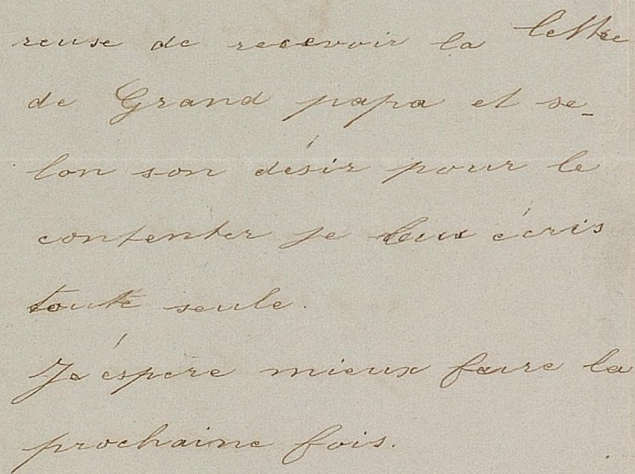 reuse de recevoir la lettre
de Grand papa et se-
lon son désir pour le
contenter je leux écris
toute seule.
J'espère mieux faire la
prochaine fois.